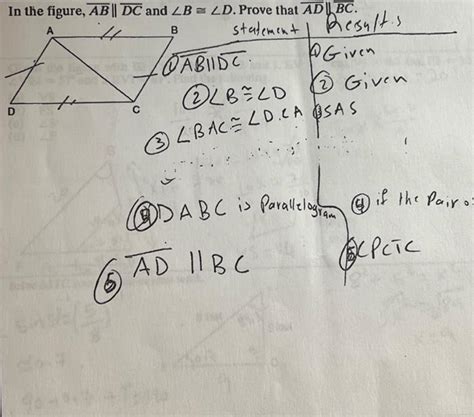 In the figure, AB || DC and ∠B ≅ ∠D. Prove that AD || BC.
A B
D C
statement Results
① AB || DC ① Given
② ∠B ≅ ∠D ② Given
③ ∠BAC ≅ ∠DCA ③ SAS
④ DABC is Parallelogram ④ if the Pair o
⑤ AD || BC ⑤ CPCTC